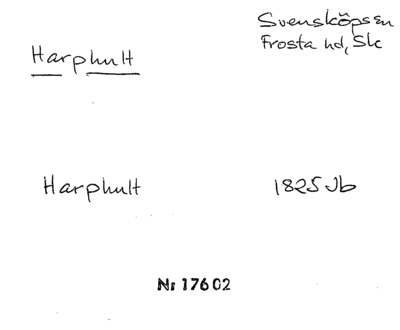 Harphult
Svensköps sn
Frosta hd, Sk
Harphult
1825 Jb
Nr 17602